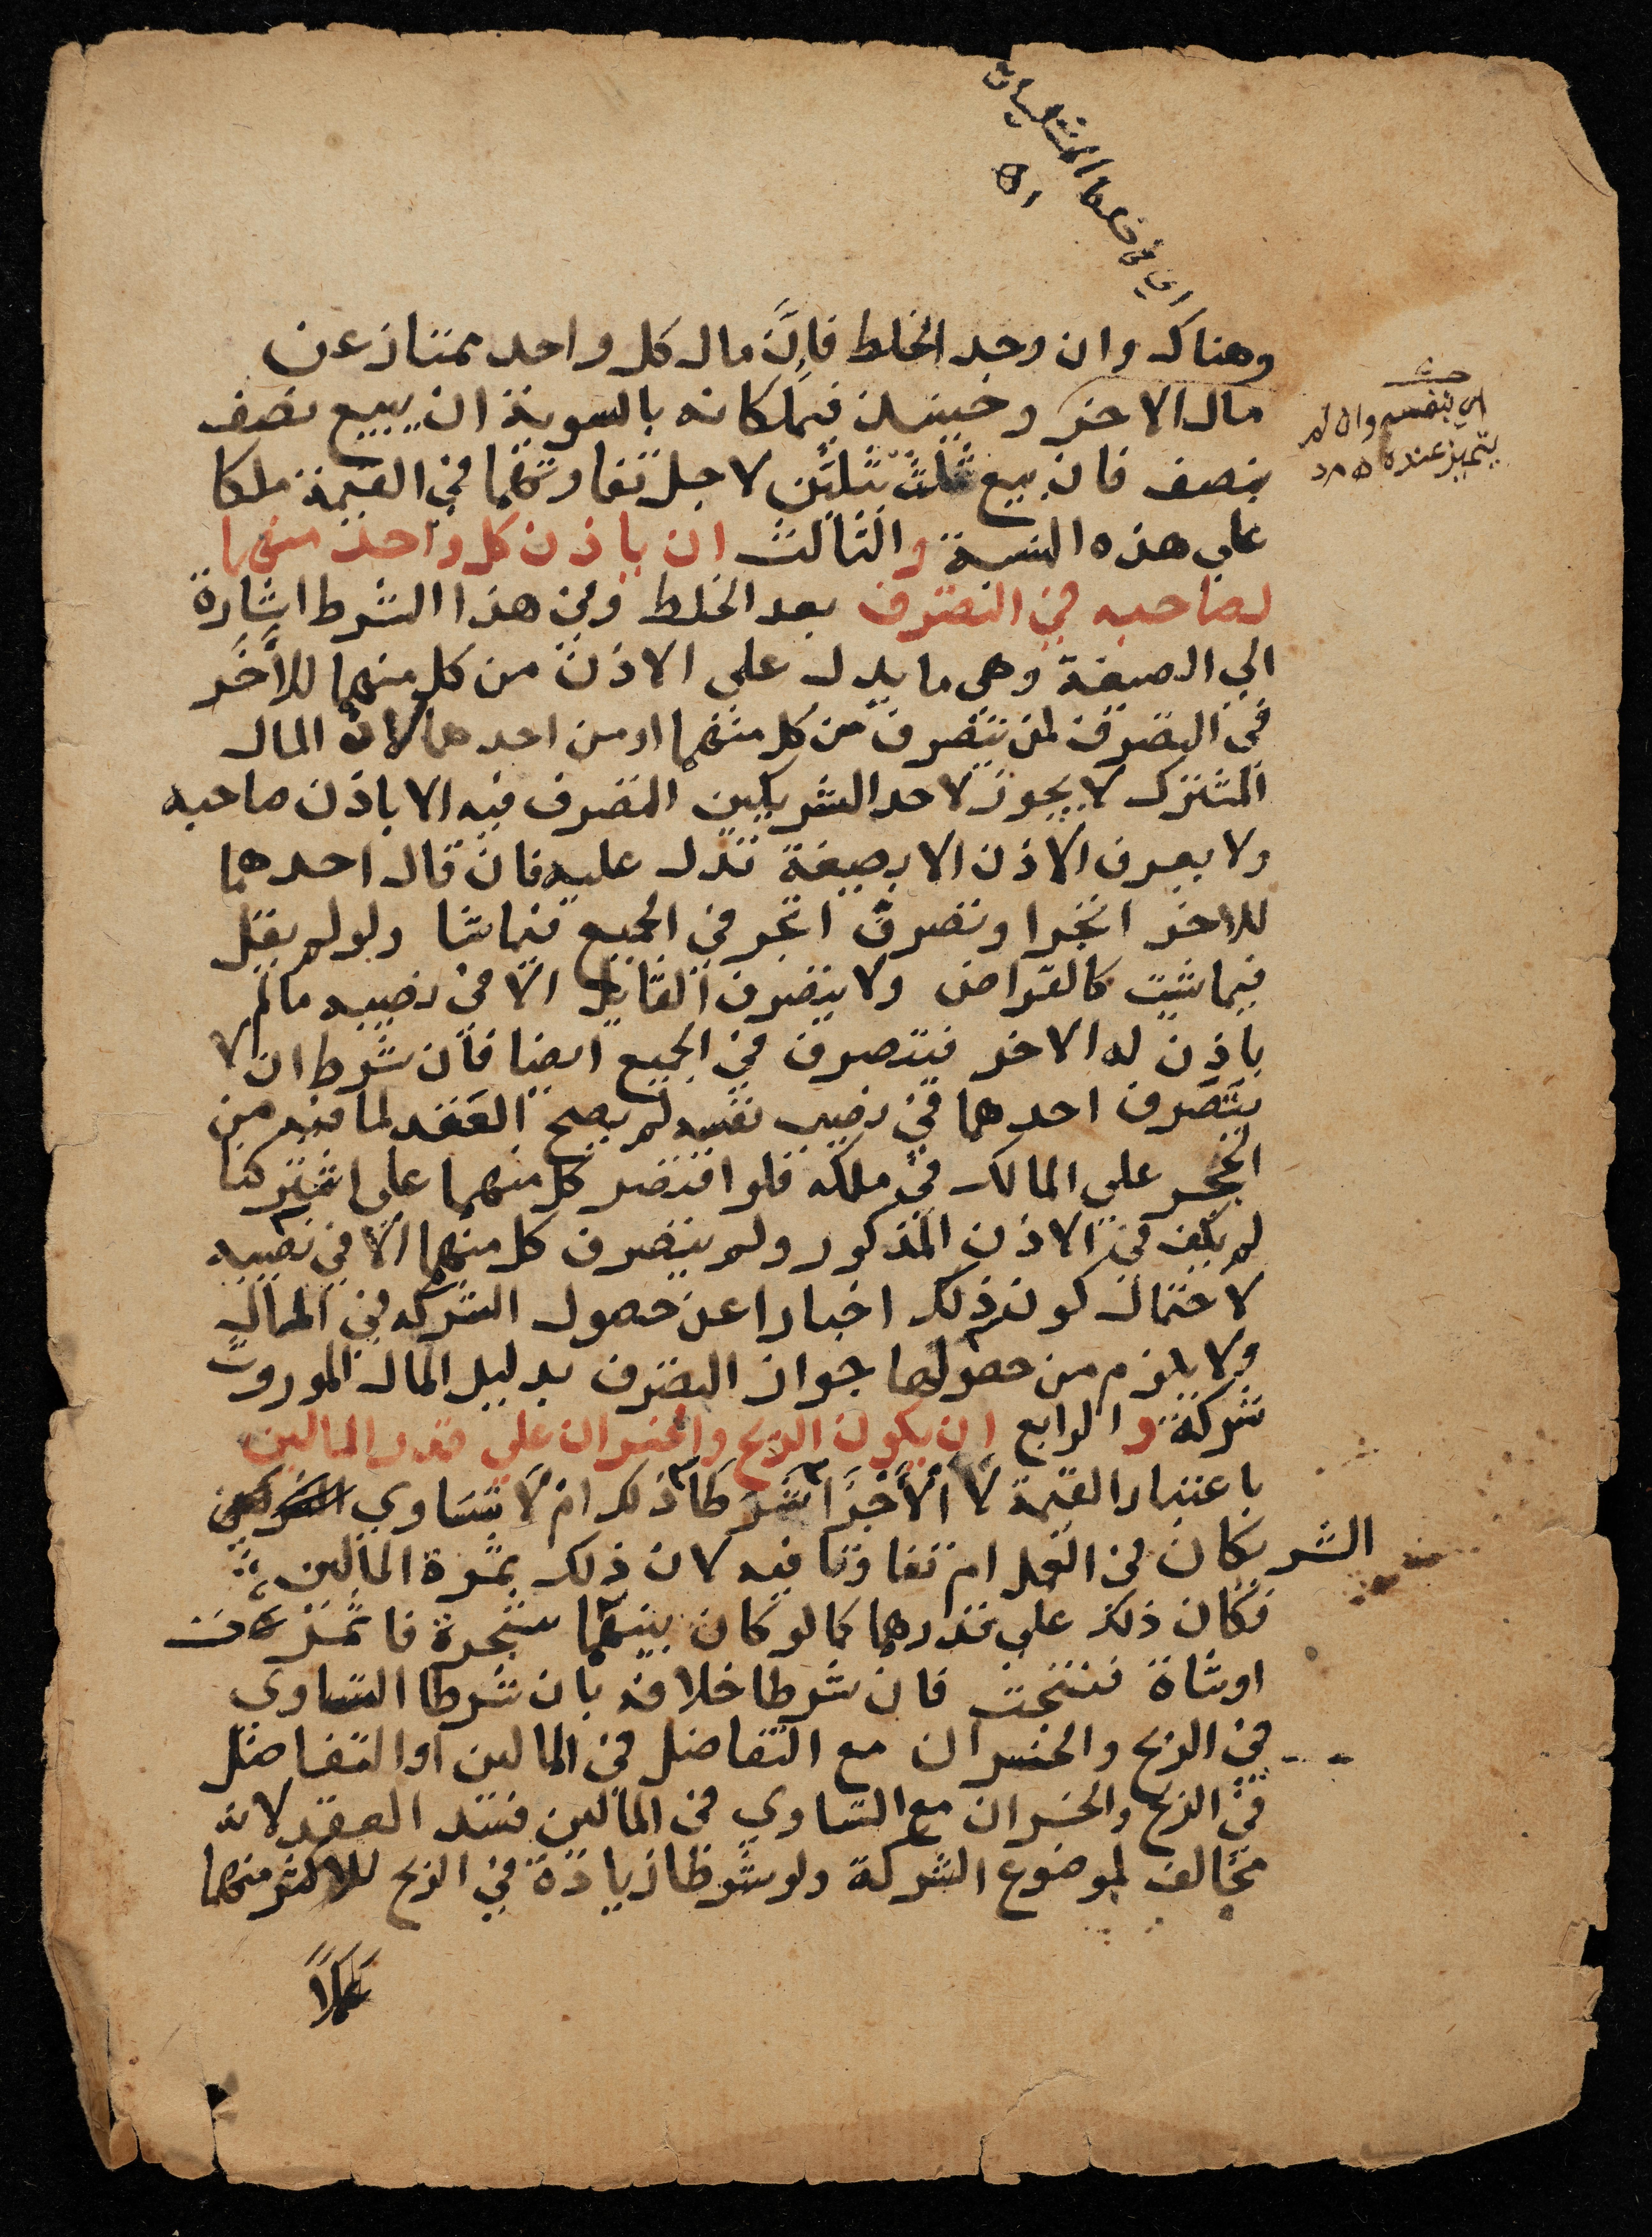 اي في خلط المتقومات
اه
وهناك وان وجد الخلط فان مال كل واحد ممتاز عن
مال الاخر وحينئذ فيملكانه بالسوية ان بيع نصف
اي بنفسه وان لم
يتميز عنده اه مد
بنصف فان بيع ثلث بثلثين لاجل تفاوتهما في القيمة ملكا
علي هذه النسبة والثالث ان ياذن كل واحد منهما
لصاحبه في التصرف بعد الخلط وفي هذا الشرط اشارة
الي الصيغة وهي ما يدل علي الاذن من كل منهما للاخر
في التصرف لمن يتصرف من كل منهما او من احدهما لان المال
المشترك لا يجوز لاحد الشريكين التصرف فيه الا باذن صاحبه
ولا يعرف الاذن الا بصيغة تدل عليه فان قال احدهما
للاخر اتجر او تصرف اتجر في الجميع فيما شا ولو لم يقل
فيما شيت كالقراض ولا يتصرف القايل الا في نصيبه مالم
ياذن له الاخر فيتصرف في الجميع ايضا فان شرط ان لا
يتصرف احدهما في نصيب نفسه لم يصح العقد لما فيه من
الحجر علي المالك في ملكه فلو اقتصر كل منهما علي اشتركنا
لم يكف في الاذن المذكور ولم يتصرف كل منهما الا في نصيبه
لاحتمال كون ذلك اخبارا عن حصول الشركه في المال
ولا يلزم من حصولها جواز التصرف بدليل المال الموروث
شركة والرابع ان يكون الربح والخسران علي قدر المالين
باعتبار القيمة لا الاجزا شرطا ذلك ام لا تساوي
الشريكان في العمل ام تفاوتا فيه لان ذلك ثمرة المالين
فكان ذلك علي قدرهما كما لو كان بينهما شجرة فاثمرت
او شاة فنتجت فان شرطا خلافه بان شرطا التساوي
في الربح والخسران مع التفاضل في المالين او التفاضل
في الربح والخسران مع التساوي في المالين فسد العقد لانه
مخالف لموضوع الشركة ولو شرطا زيادة في الربح للاكثر منهما
عملا